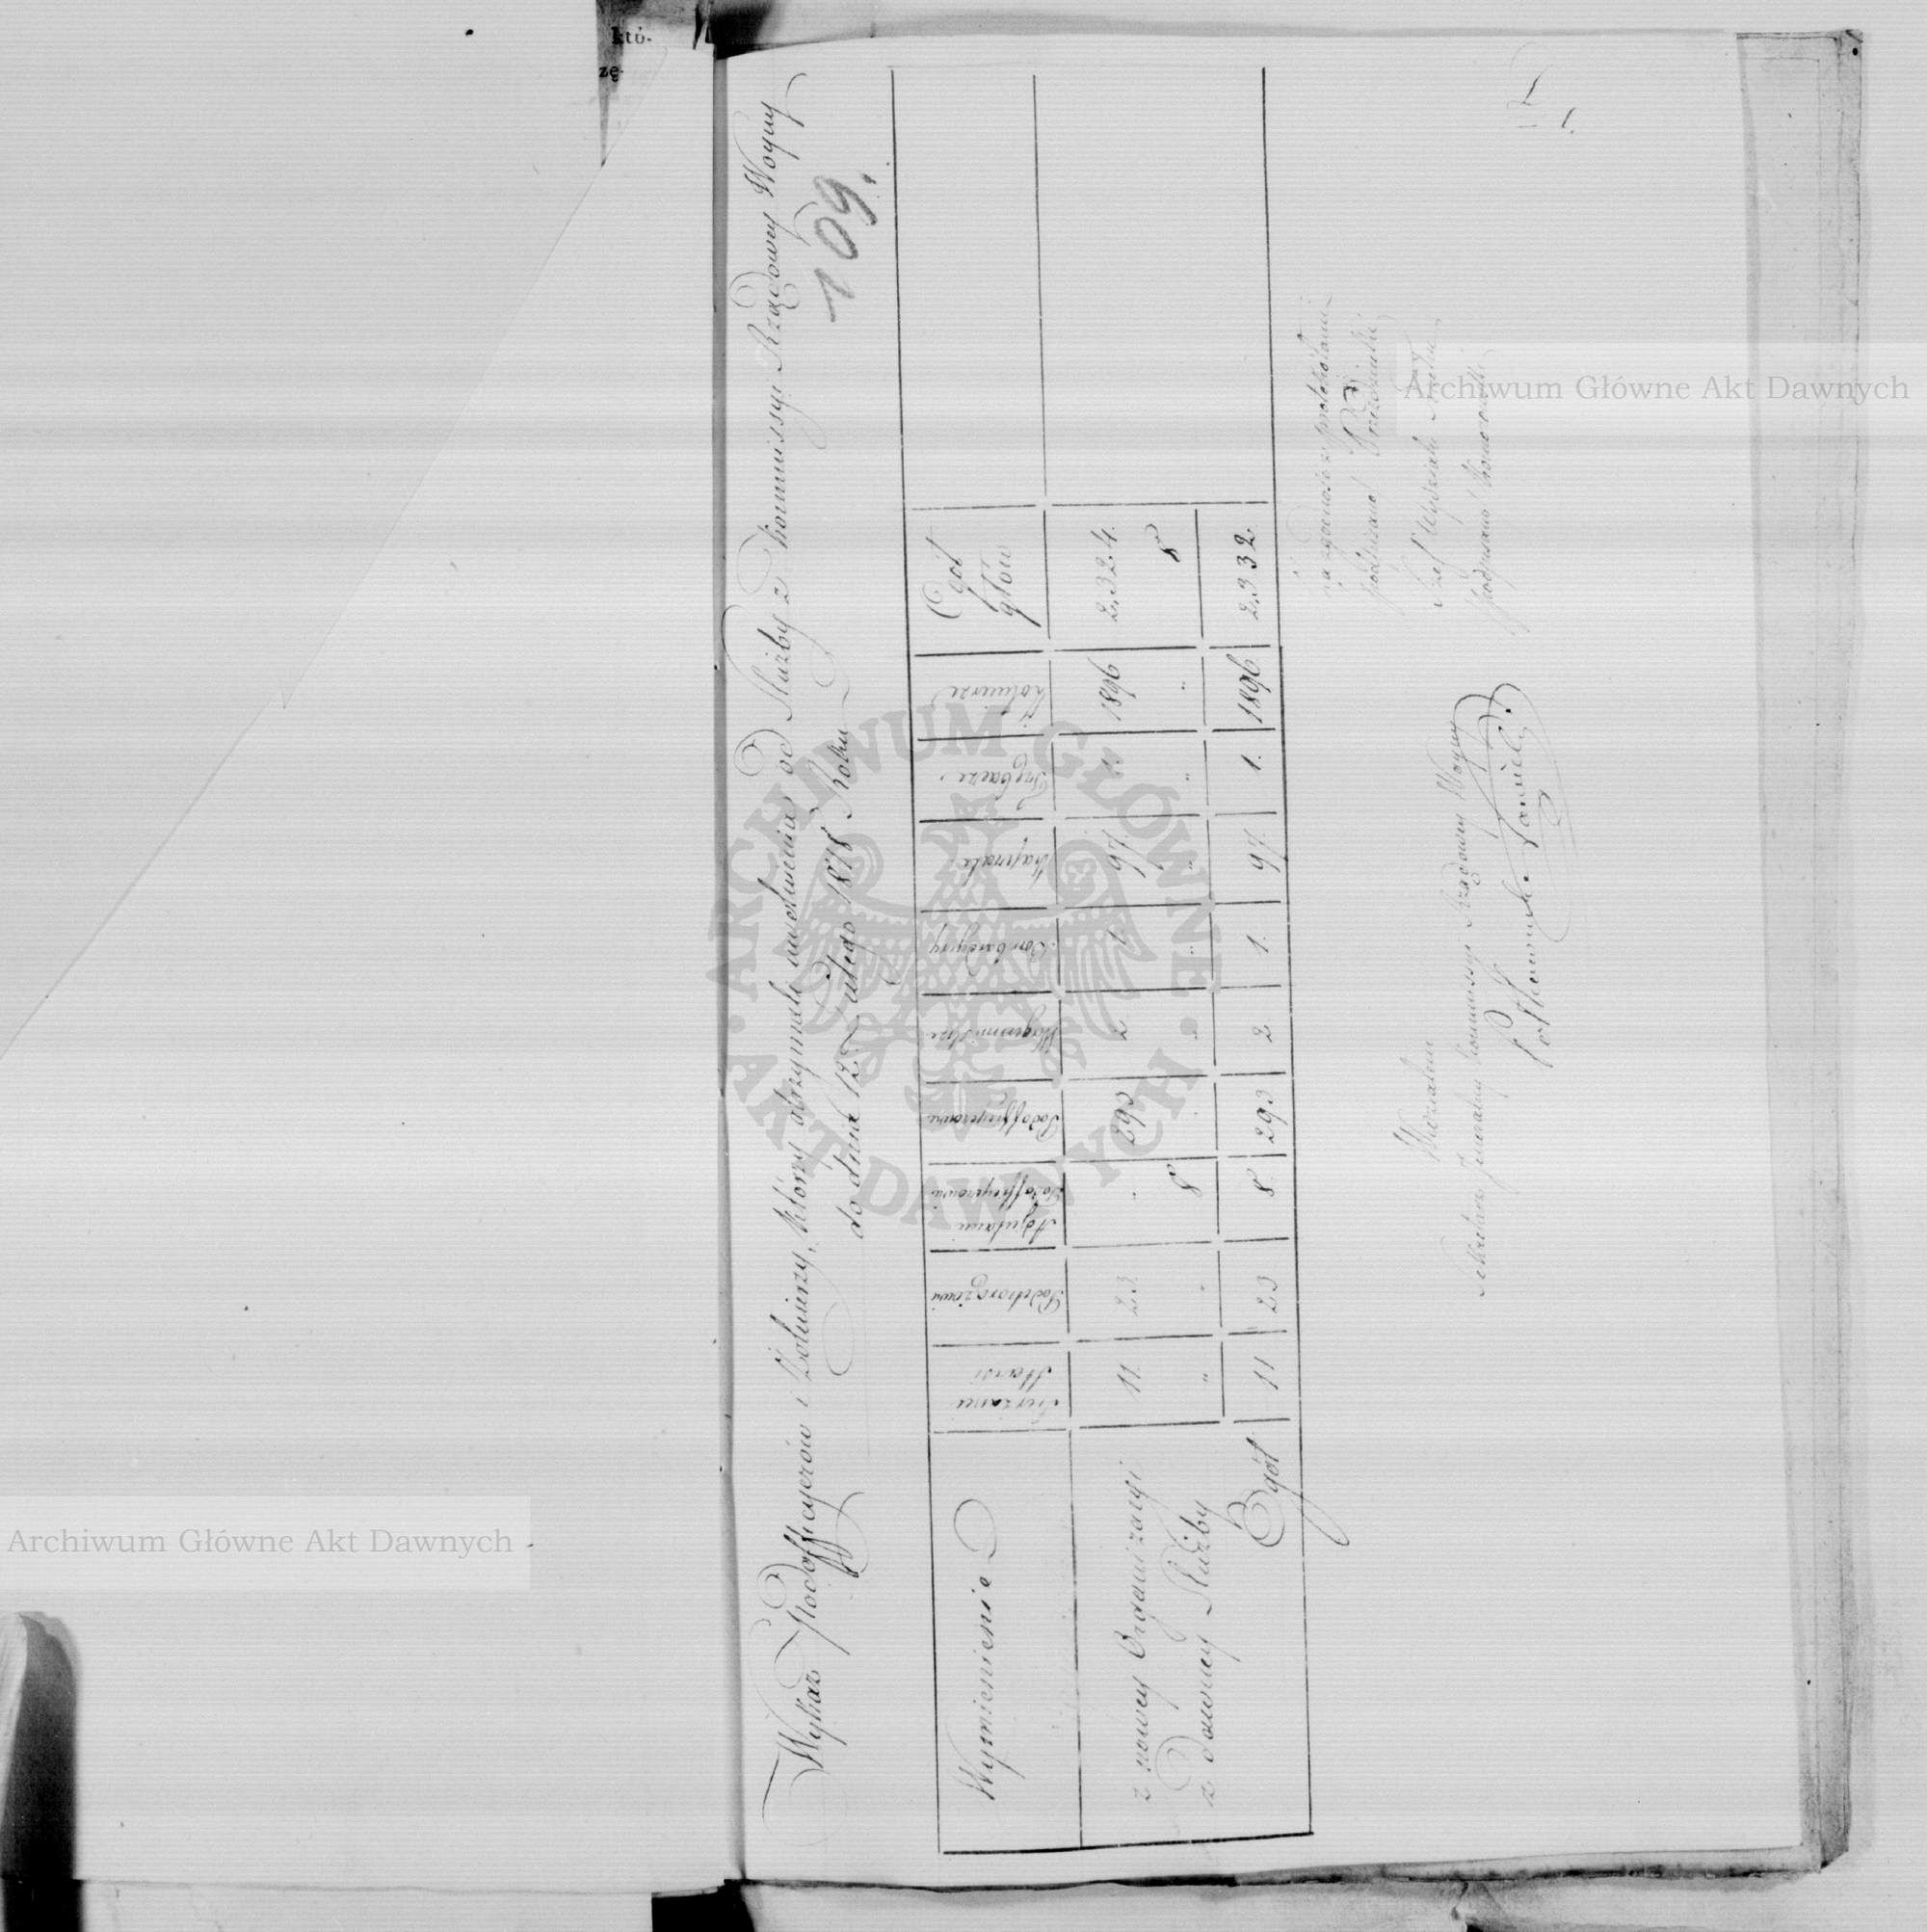 któ-
zę-
Wykaz Podofficyerów i Żołnierzy, którzy otrzymali uwolnienia od Służby z Kommissyi Rządowey Woyny
do dnia 12. Lutego 1818 Roku
109.
Wymienienie Sierżanci Starsi Podchorążowie Adjutanci Podofficyerowie Podofficyerowie Wagenmistrze Bombardyery Kaprale Trębacze Żołnierze Ogół głów
z nowey Organizacyi 11. 23. " 293 2 1. 97. 1. 1896 2,324.
z dawney Służby " " 8 " " " " " " 8
Ogół 11 23 8. 293 2. 1. 97. 1. 1896 2,332.
Za zgodność z protokołami
podpisano
Szef Wydziału
podpisano
Widziałem
Sekretarz Jeneralny Kommissyi Rządowey Woyny
Archiwum Główne Akt Dawnych
Archiwum Główne Akt Dawnych
ARCHIWUM GŁÓWNE
AKT DAWNYCH